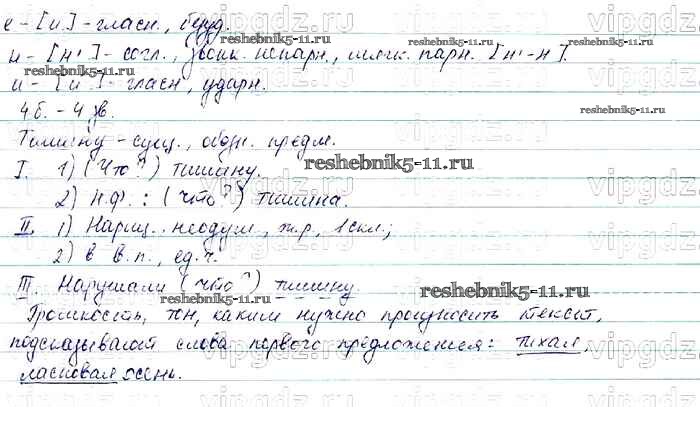 е – [и] – гласн., безуд.
н – [н'] – согл., звонк. непарн., мягк. парн. [н'-н].
и – [и] – гласн, ударн.
4 б. – 4 зв.
Тишину – сущ., обозн. предм.
I. 1) (Что?) тишину.
2) н.ф.: (что?) тишина.
II. 1) Нариц. неодуш., ж.р, 1 скл.;
2) в В.п., ед.ч.
III. Нарушали (что?) тишину.
Громкость, тон, каким нужно произносить текст,
подсказывают слова первого предложения: тихая,
ласковая осень.
reshebnik5-11.ru
reshebnik5-11.ru
reshebnik5-11.ru
reshebnik5-11.ru
reshebnik5-11.ru
reshebnik5-11.ru
reshebnik5-11.ru
vipgdz.ru